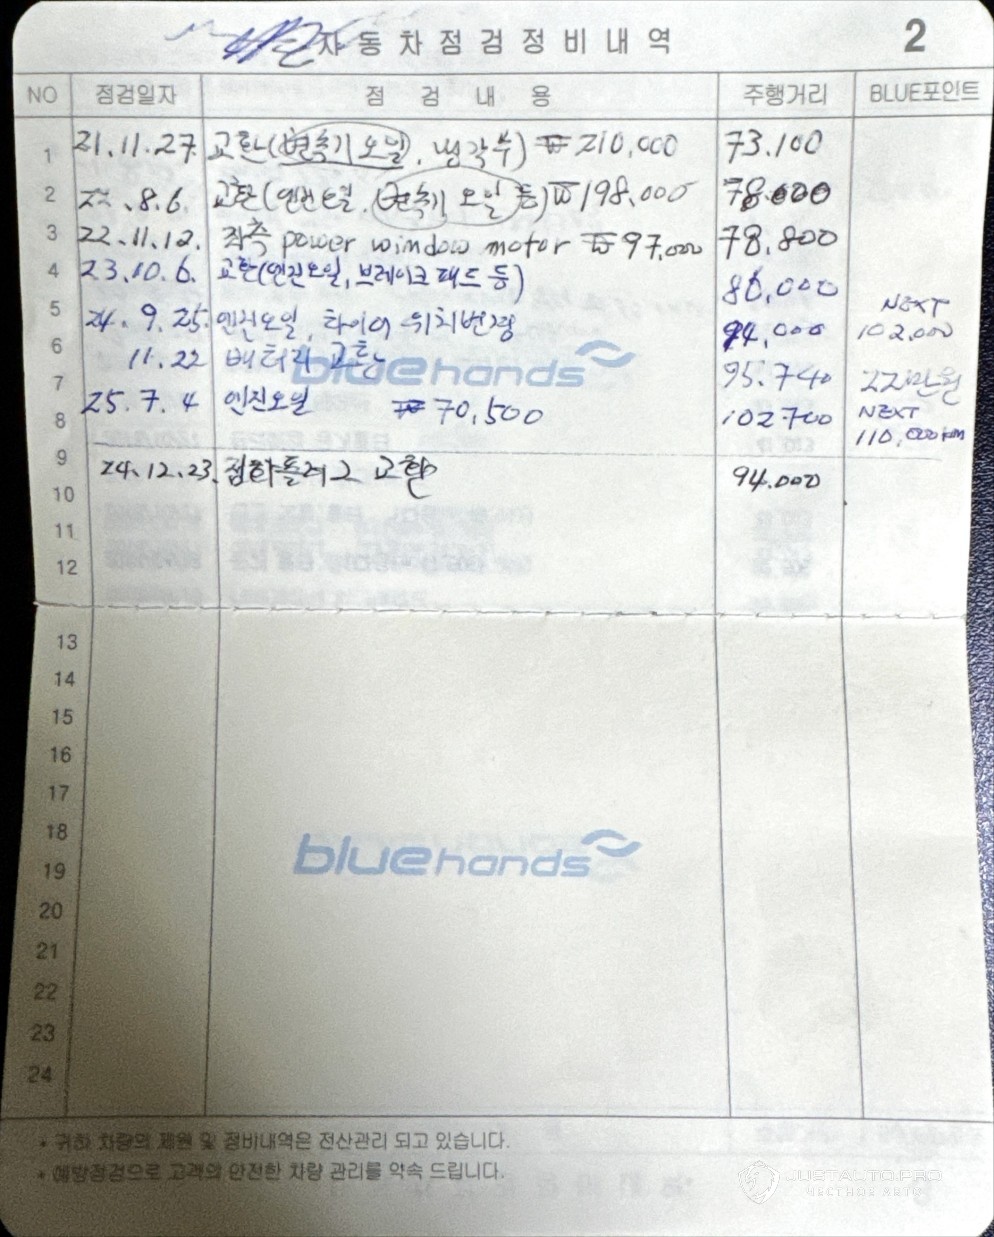 자동차점검정비내역 2
NO 점검일자 점 검 내 용 주행거리 BLUE포인트
1 21.11.27. 교환(변속기 오일, 냉각수) ₩210,000 73.100
2 22.8.6. 교환(엔진오일, 변속기 오일 등) ₩198,000 78.000
3 22.11.12. 좌측 power window motor ₩97,000 78.800
4 23.10.6. 교환(엔진오일, 브레이크 패드 등) 86,000
5 24.9.25. 엔진오일, 타이어 위치변경 94,000 NEXT 102,000
6 11.22 배터리 교환 95.740 22만원
bluehands
7 25.7.4 엔진오일 ₩70,500 102700 NEXT 110,000km
8
9 24.12.23. 점화플러그 교환 94.000
10
11
12
13
14
15
16
17
18
bluehands
19
20
21
22
23
24
• 귀하 차량의 제원 및 정비내역은 전산관리 되고 있습니다.
• 예방점검으로 고객의 안전한 차량 관리를 약속 드립니다.
JUSTAUTO.PRO
ЧЕСТНОЕ АВТО